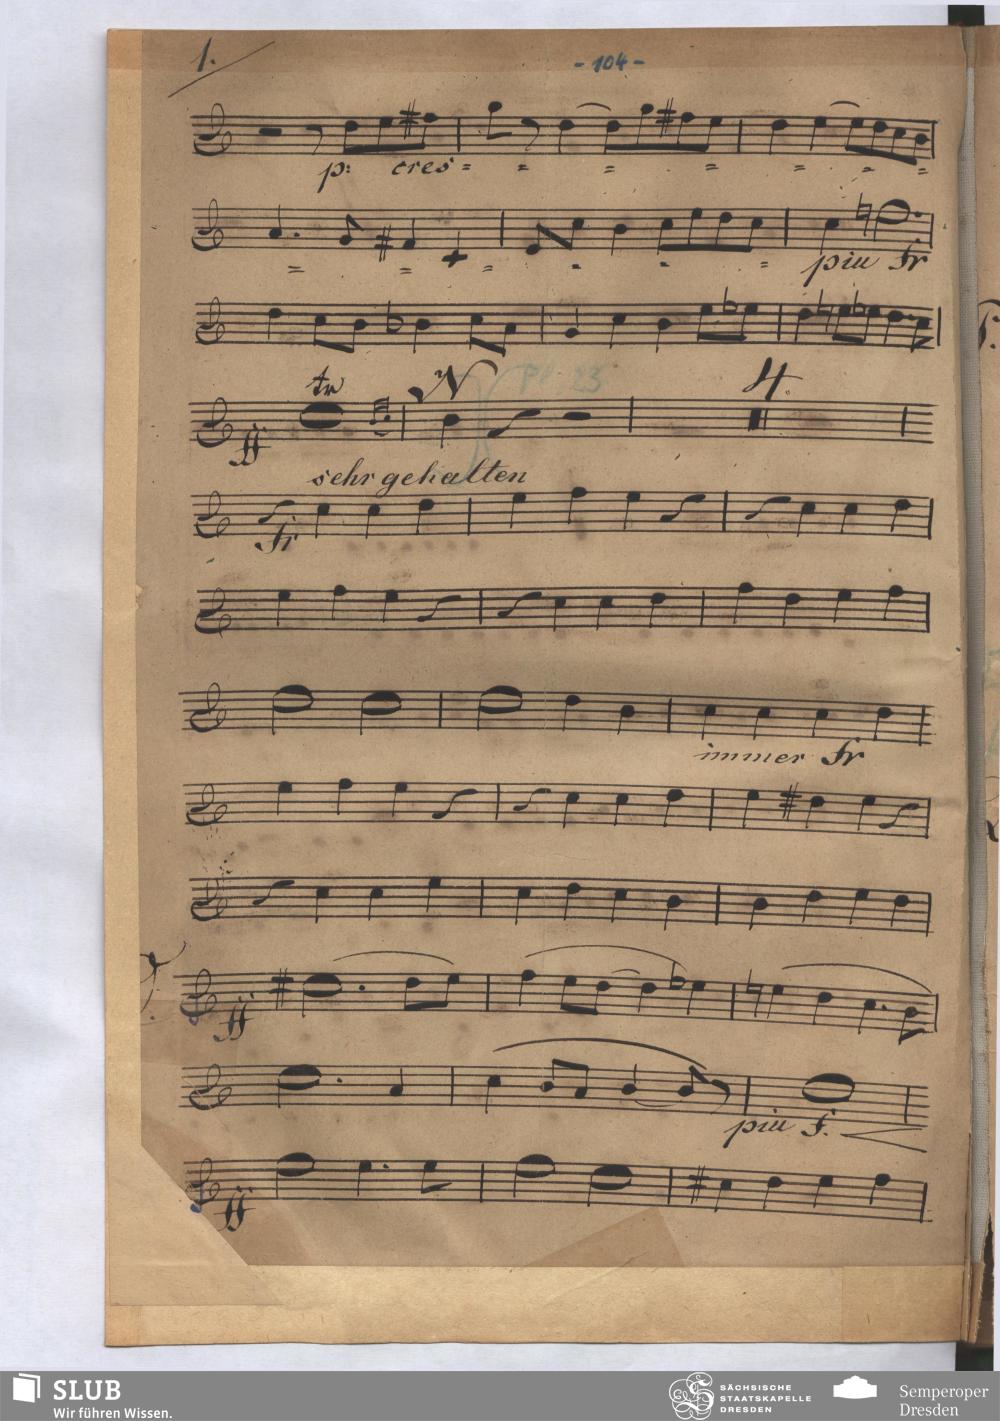 1.
- 104 -
p: cres = = = = = = =
= = = = = =
piu Fr
tr N 4.
ff
sehr gehalten
Fr
immer Fr
ff
piu F.
ff
SLUB
Wir führen Wissen.
SÄCHSISCHE
STAATSKAPELLE
DRESDEN
Semperoper
Dresden